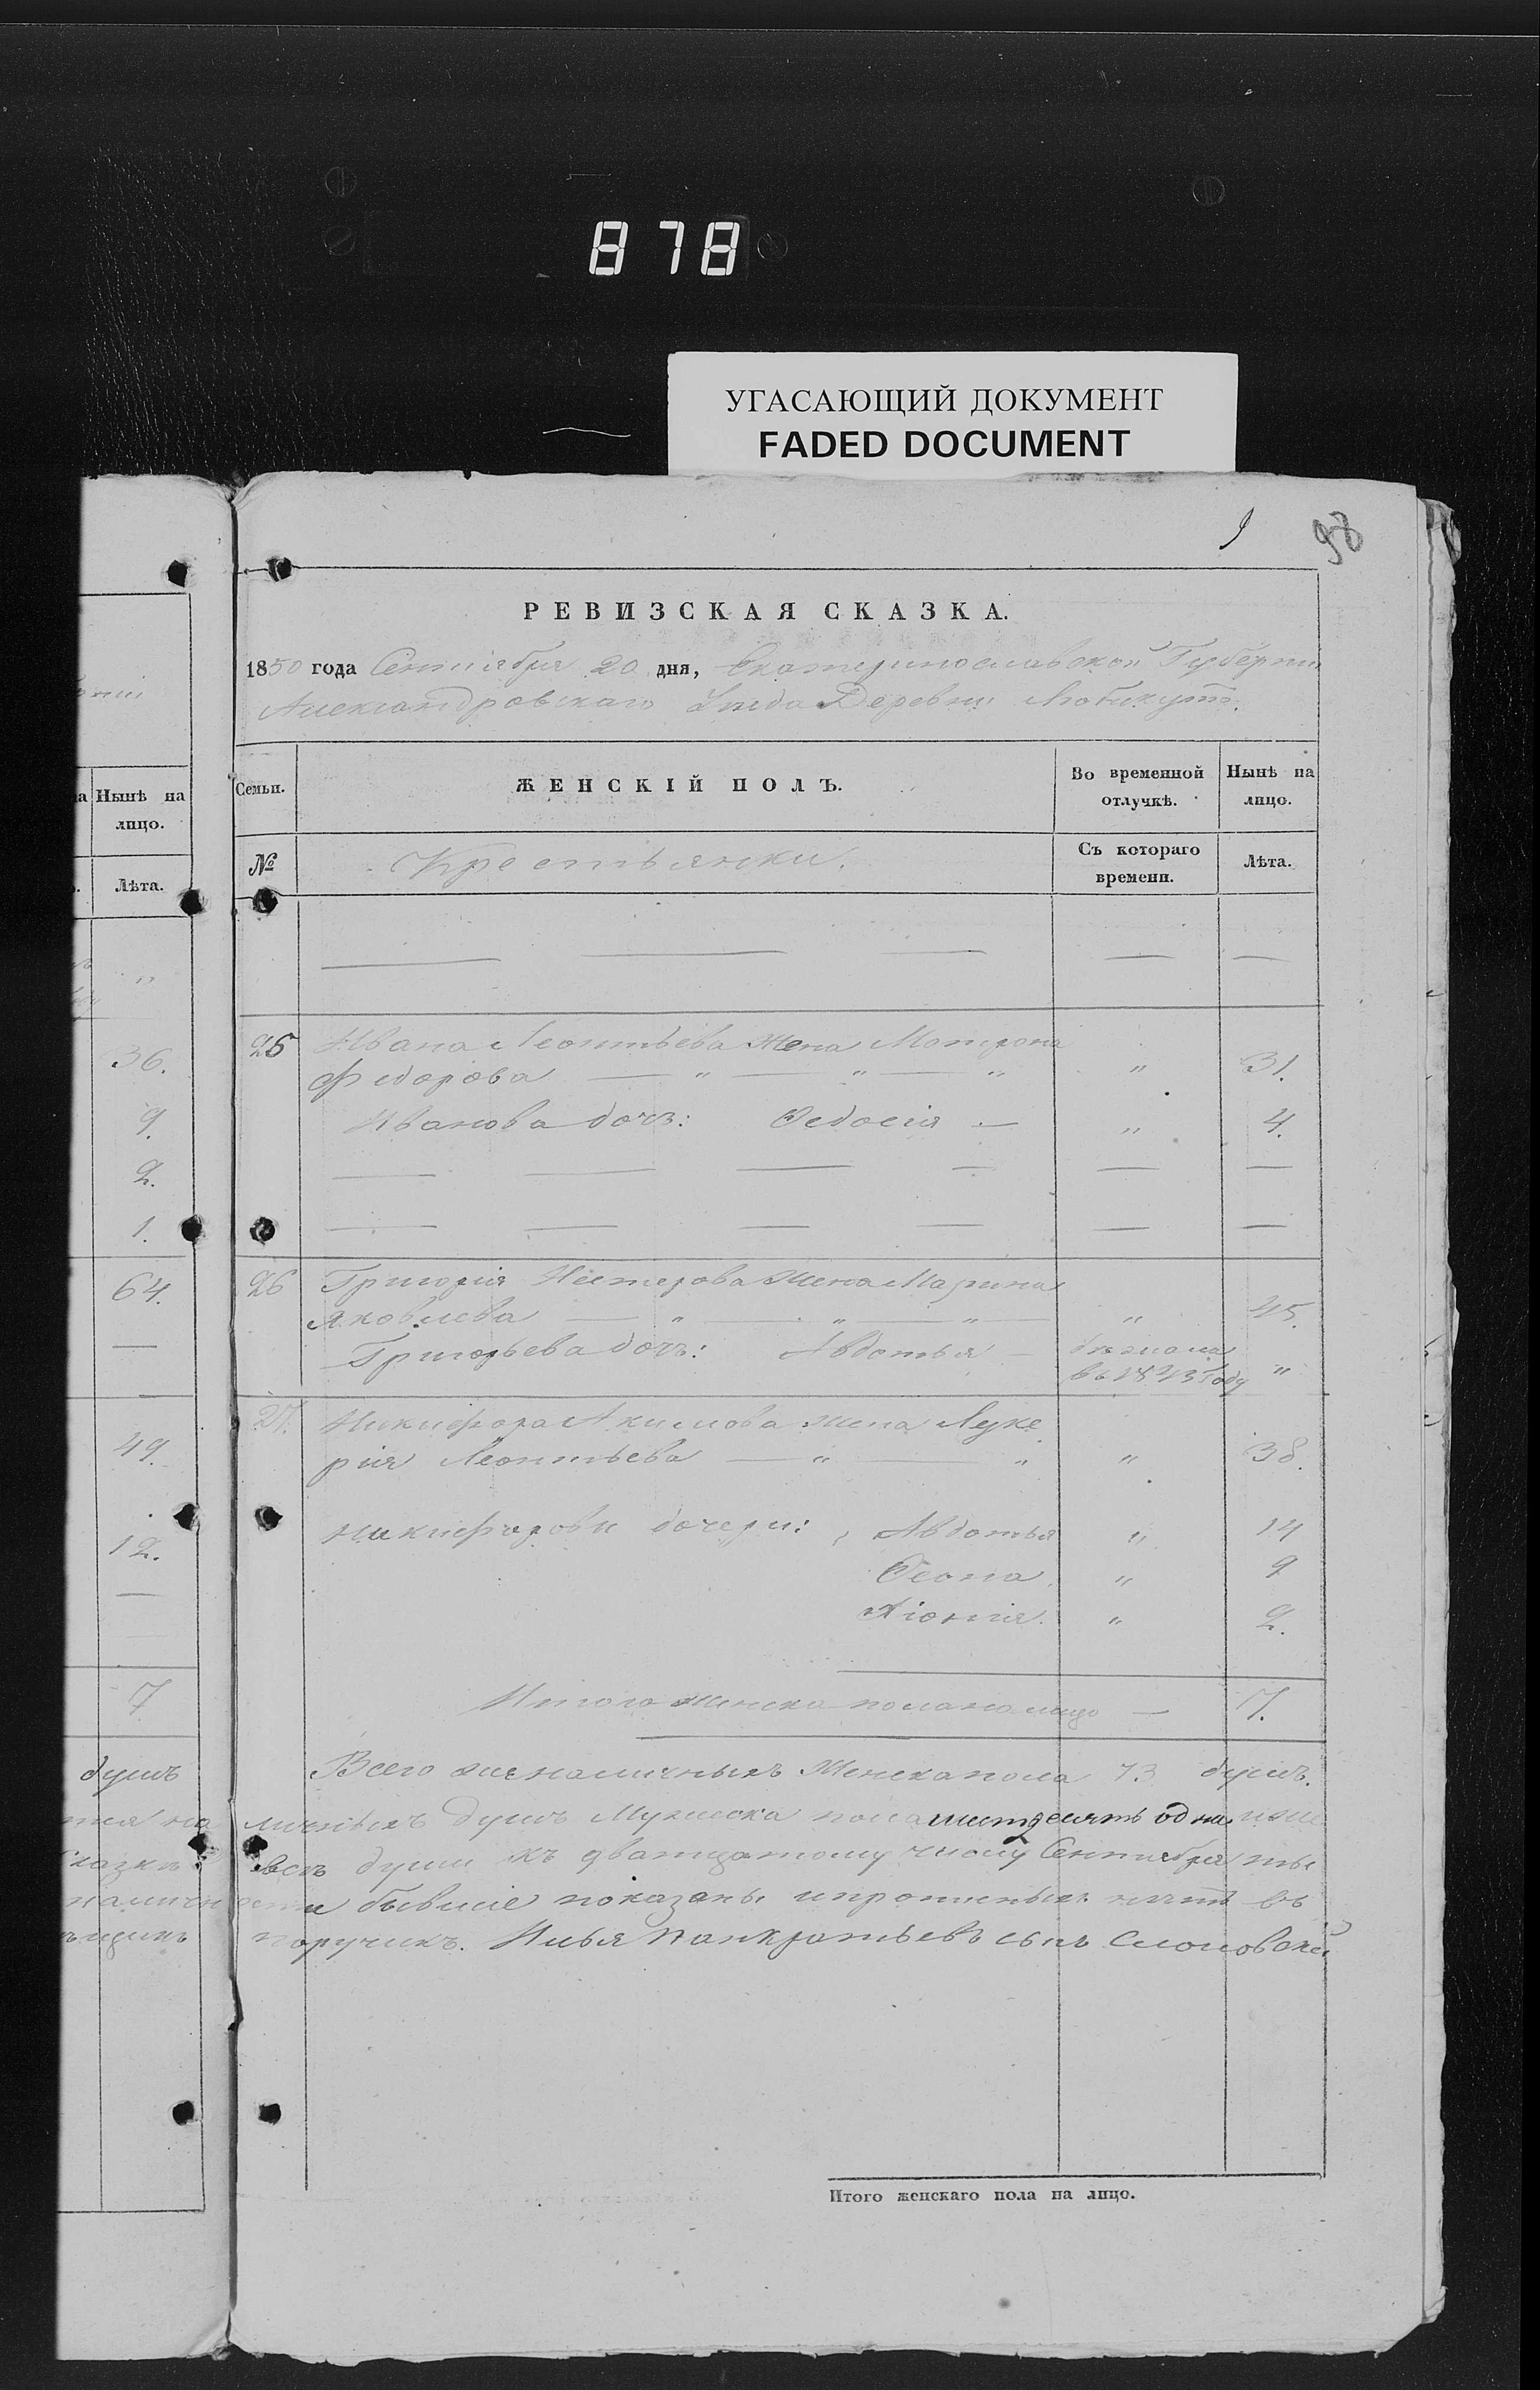 878
УГАСАЮЩИЙ ДОКУМЕНТ
FADED DOCUMENT
9 98
РЕВИЗСКАЯ СКАЗКА.
1850 года Сентября 20 дня, Екатеринославской Губерніи
Александровскаго Уезда Деревни
Семьи.
ЖЕНСКІЙ ПОЛЪ.
Во временной отлучкѣ.
Нынѣ на лицо.
№
Крестьянки.
Съ котораго времени.
Лѣта.
25 Ивана Леонтьева жена Матрона
Федорова — " — " — " " 31.
Иванова дочь: Федосія — " 4.
26 Григорія Нестерова жена Марина
Яковлева — " — " — " — " 45.
Григорьева дочь: Авдотья — въ 1843 году "
27. Никифора Акимова жена Луке
рия Леонтьева — " — " " 38.
Никифоровы дочери: Авдотья " 14
" 9
" 2.
Итого женска пола на лицо — 7.
Всего наличныхъ Женска пола 73 душъ.
личныхъ душъ Мужеска пола
всѣ души къ двадцатому числу Сентября
бывшіе показаны и прописныхъ нѣтъ въ
поручикъ. Илья Панкратьевъ сынъ
Итого женскаго пола на лицо.
Нынѣ на
лицо.
Лѣта.
"
36.
9.
2.
1.
64.
49.
12.
7
душъ